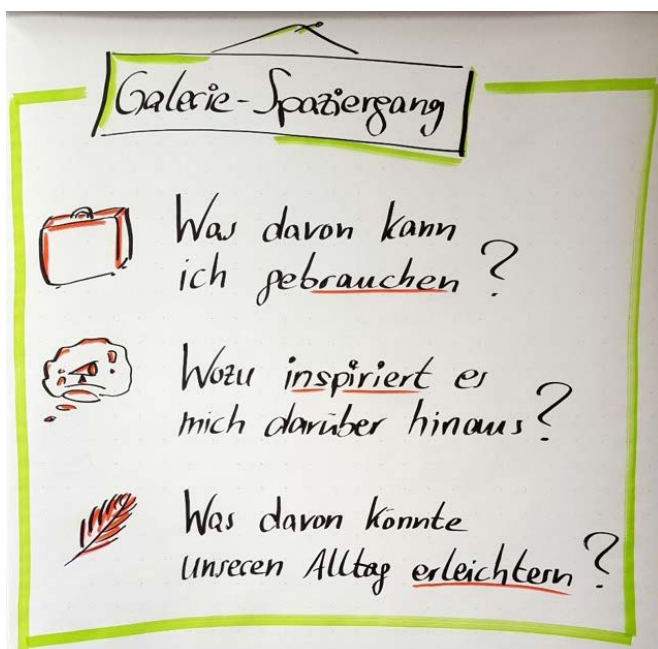 Galerie-Spaziergang
Was davon kann
ich gebrauchen?
Wozu inspiriert es
mich darüber hinaus?
Was davon könnte
unseren Alltag erleichtern?